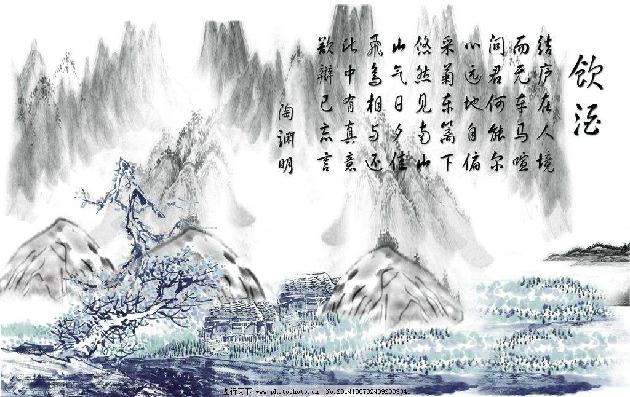 飲酒
结庐在人境
而无车马喧
问君何能尔
心远地自偏
采菊东篱下
悠然见南山
山气日夕佳
飛鸟相与还
此中有真意
欲辩已忘言
陶渊明
www.photophoto.cn